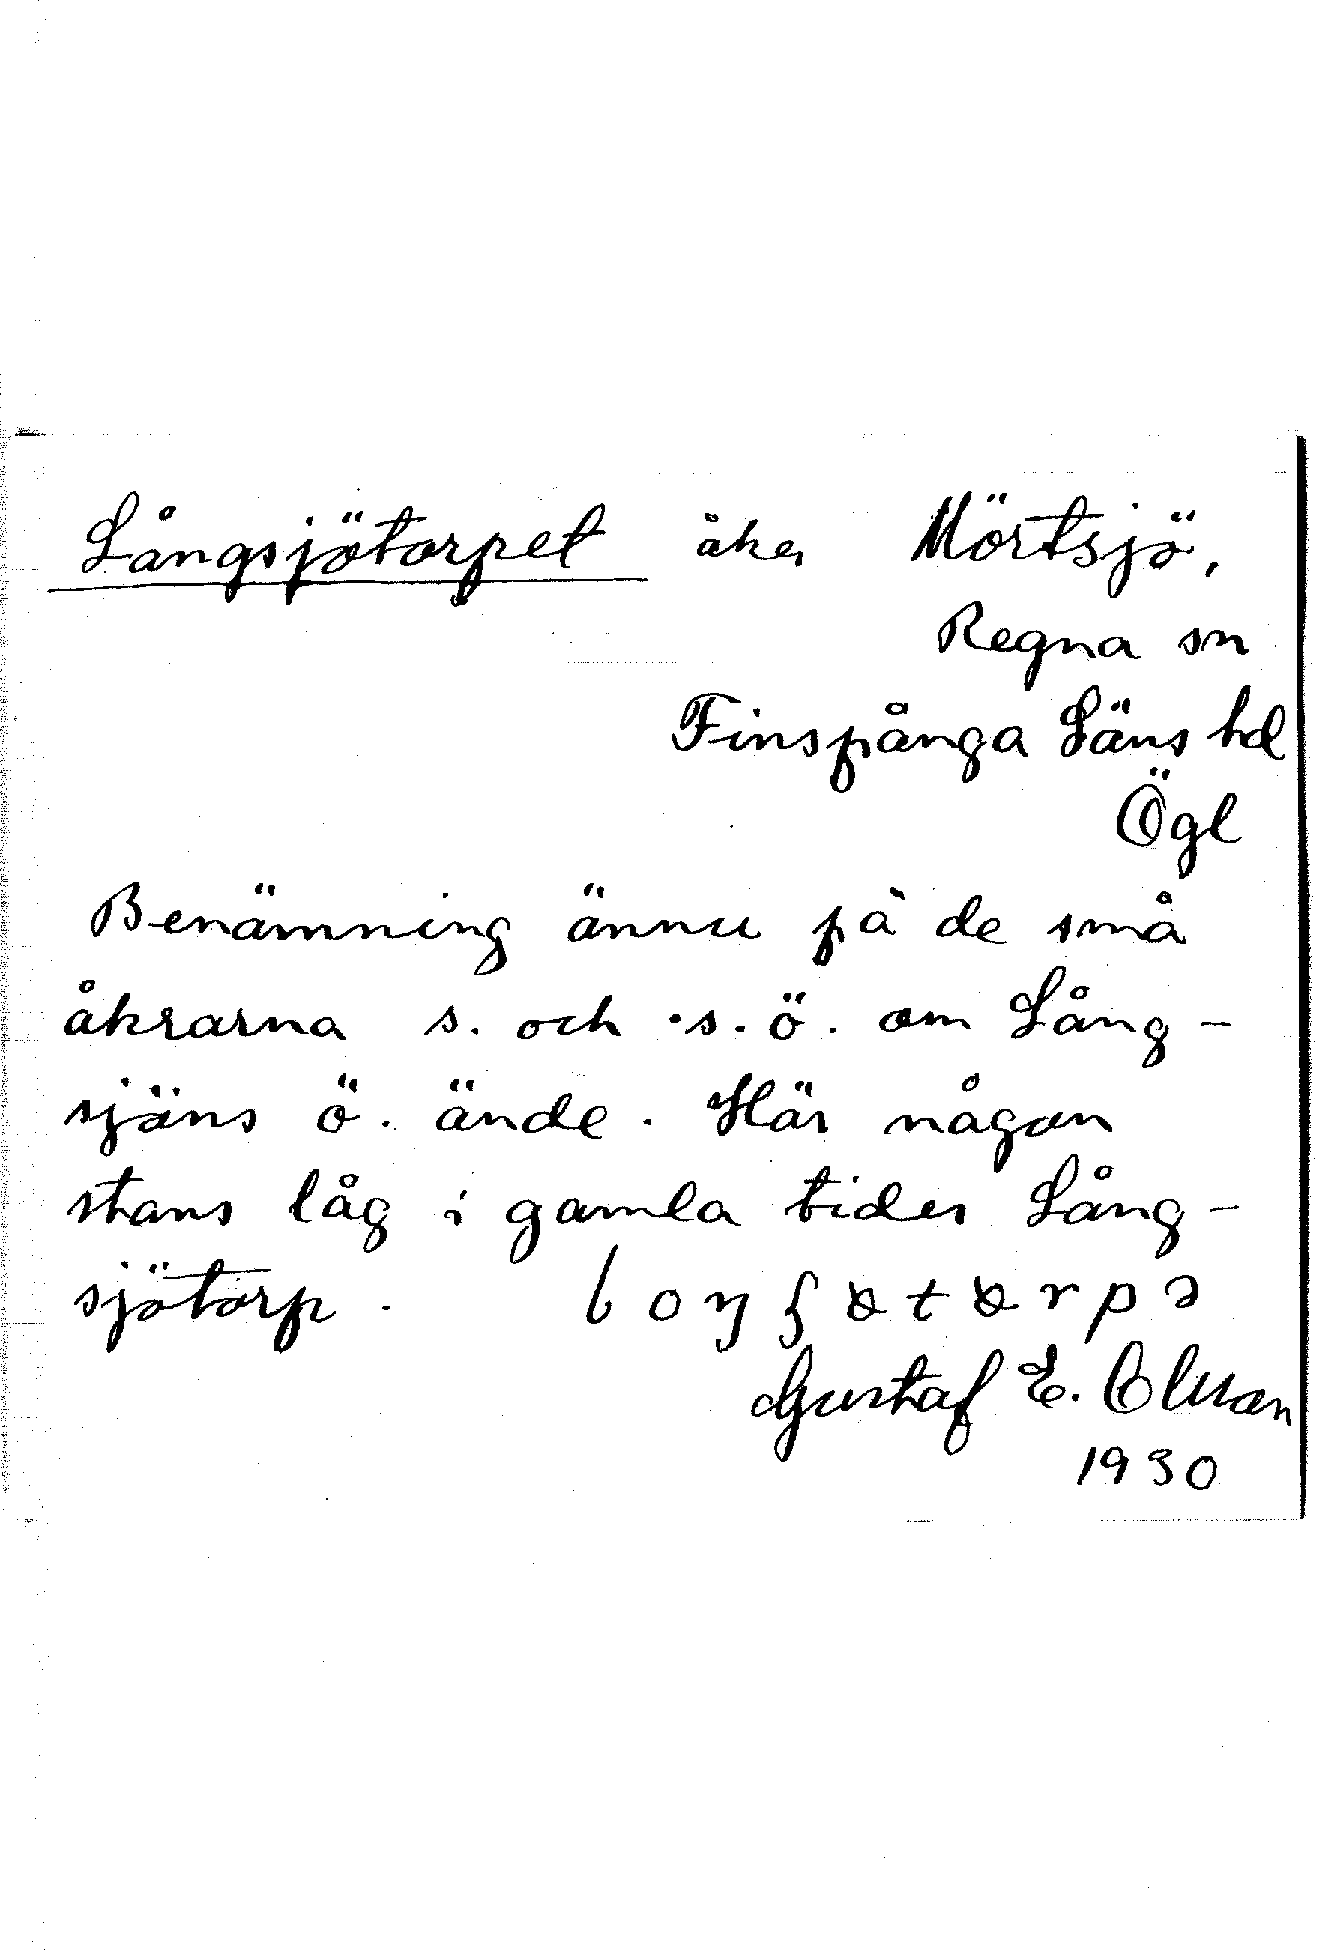 Långsjötorpet åker Mörtsjö,
Regna sn
Finspånga Läns hd
Ögl
Benämning ännu på de små
åkrarna s. och s.ö. om Lång-
sjöns ö. ände. Här någon
stans låg i gamla tider Lång-
sjötorp.
Gustaf E. Olsson
1930